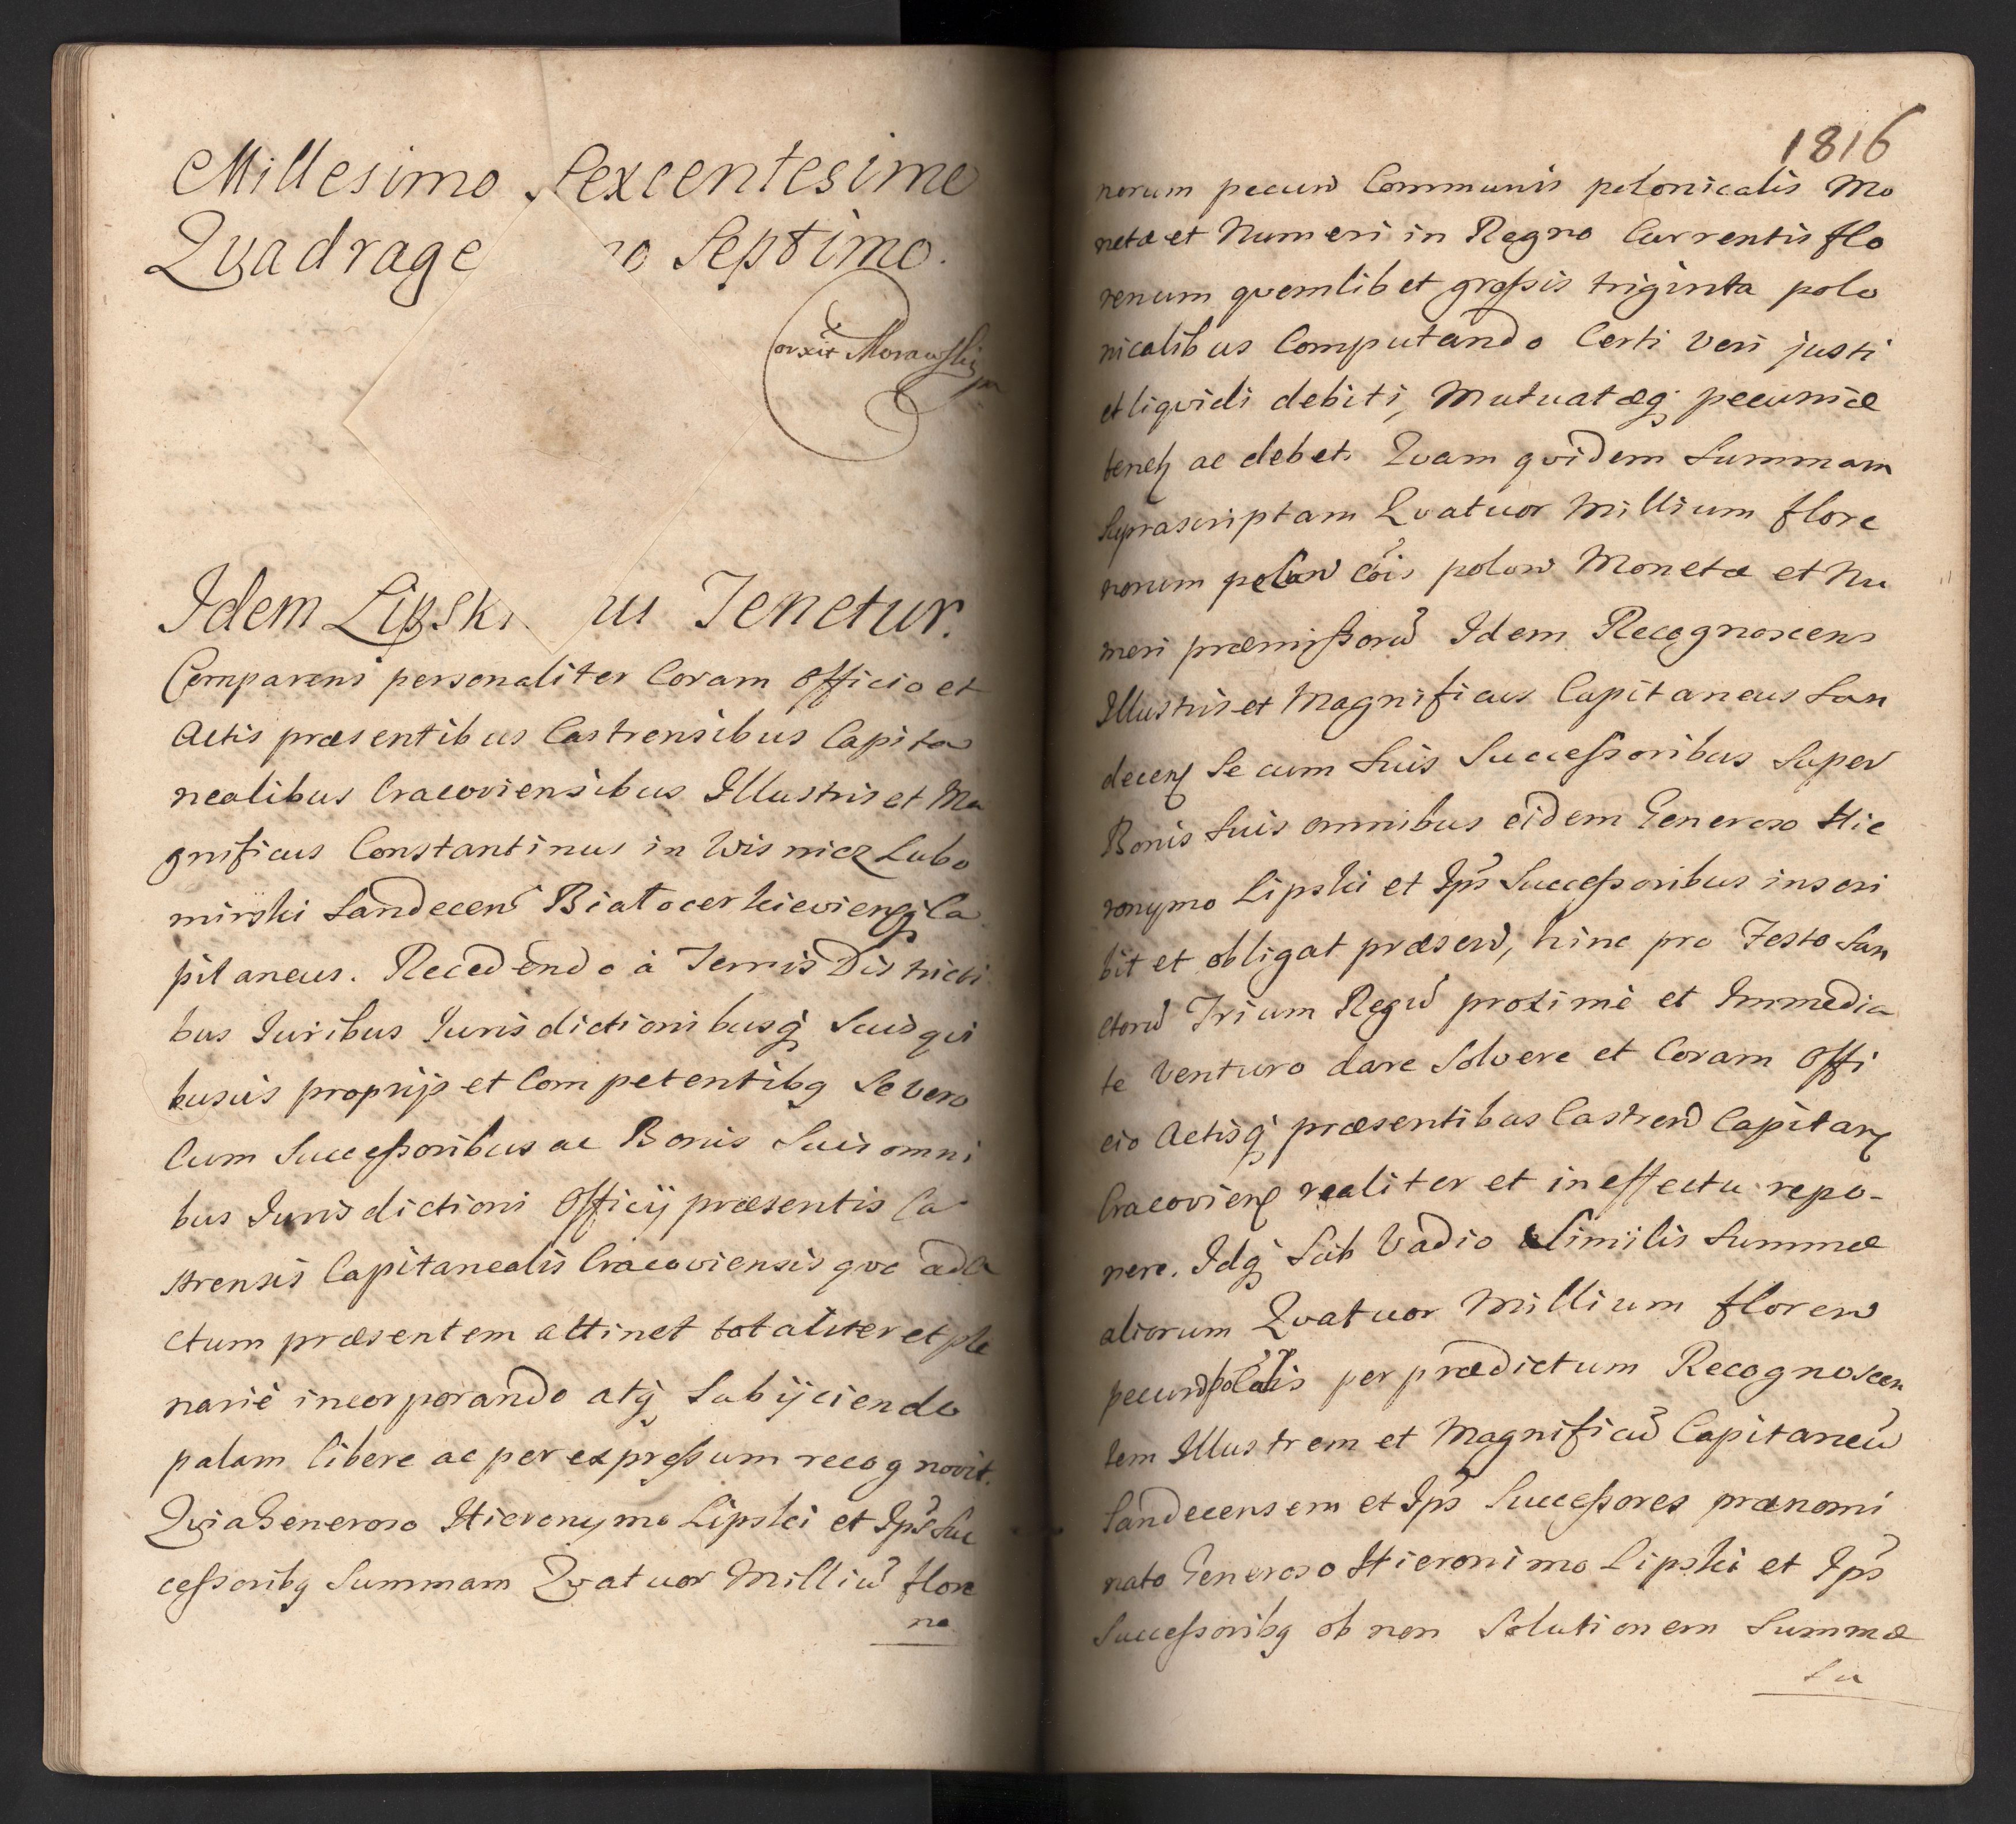 Millesimo Sexcentesimo
Quadrage no Septimo.
orxit Morawski
Idem Lipski Tenetur.
Comparens personaliter Coram Officio et
Actis præsentibus Castrensibus Capita
nealibus Cracoviensibus Illustris et Ma
gnificus Constantinus in Wisnicz Lubo
mirski Sandecen Białocerkieviensq Ca
pitaneus. Recedendo à Terris Districti
bus Iuribus Iurisdictionibusq suis qui
busvis proprijs et Competentibq Se vero
Cum Successoribus ac Bonis Suis omni
bus Iurisdictioni Officij præsentis Ca
strensis Capitanealis Cracoviensis qvo ad a
ctum præsentem attinet totaliter et ple
nariè incorporando atq Subijciendo
palam libere ac per expressum recognovit.
Qvia Generoso Hieronymo Lipski et Ips Suc
cessoribq Summam Qvatuor Milliu flore
no
1816
norum pecun Communis polonicalis Mo
netæ et Numeri in Regno Currentis flo
renum qvemlibet grossis triginta polo
nicalibus Computando Certi veri justi
et liqvidi debiti, Mutuatæq pecuniæ
tenet ac debet. Qvam qvidem Summam
Suprascriptam Qvatuor Millium flore
norum pecun cõis polon Monetæ et Nu
meri præmissoru Idem Recognoscens
Illustris et Magnificus Capitaneus San
decens Se cum Suis Successoribus Super
Bonis Suis omnibus eidem Generoso Hie
ronymo Lipski et Ips Successoribus inscri
bit et obligat præsen, hinc pro Festo San
ctoru Trium Regu proximè et Immedia
te Venturo dare Solvere et Coram Offi
cio Actisq præsentibus Castren Capitan
Cracoviens realiter et in effectu repo-
nere. Idq Sub Vadio Similis Summæ
aliorum Qvatuor Millium floren
pecun polalis per prædictum Recognoscen
tem Illustrem et Magnificu Capitaneu
Sandecensem et Ips Successores prænomi
nato Generoso Hieronimo Lipski et Ips
Successoribq ob non Solutionem Summæ
Su